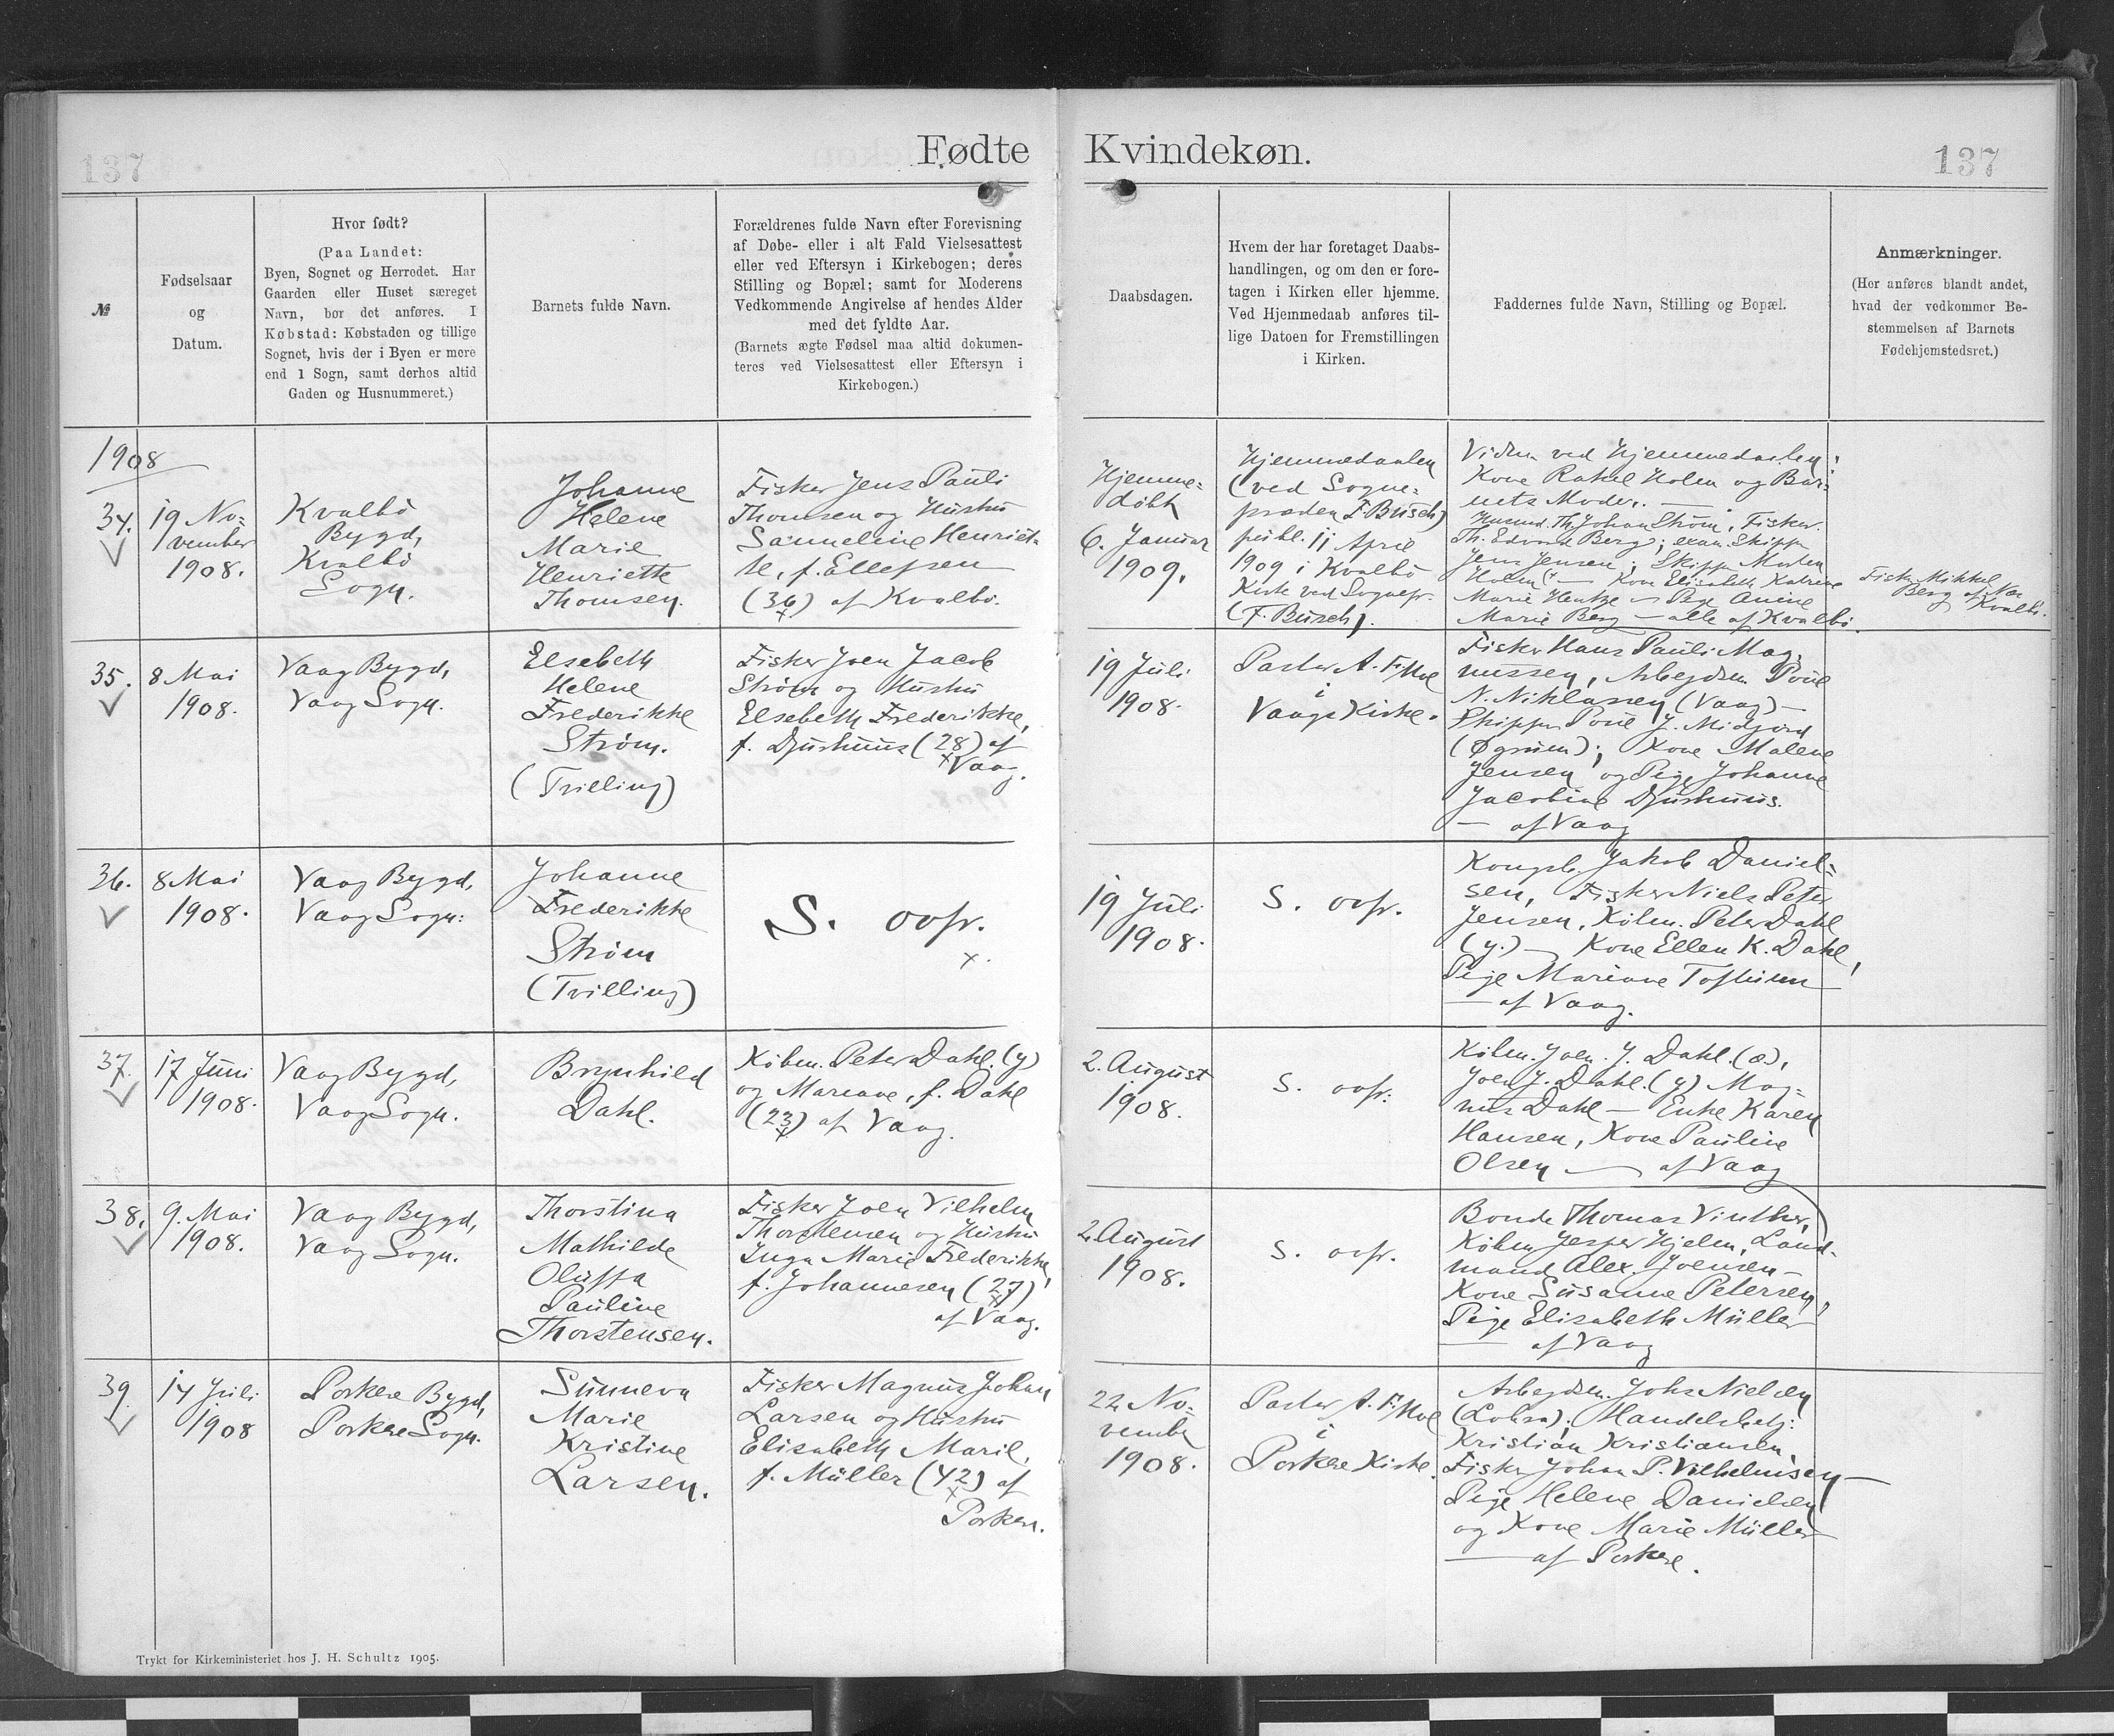 137
Fødte Kvindekøn.
137
№
Fødselsaar
og
Datum.
Hvor født?
(Paa Landet:
Byen, Sognet og Herredet. Har
Gaarden eller Huset særeget
Navn, bør det anføres. I
Købstad: Købstaden og tillige
Sognet, hvis der i Byen er mere
end 1 Sogn, samt derhos altid
Gaden og Husnummeret.)
Barnets fulde Navn.
Forældrenes fulde Navn efter Forevisning
af Døbe- eller i alt Fald Vielsesattest
eller ved Eftersyn i Kirkebogen; deres
Stilling og Bopæl; samt for Moderens
Vedkommende Angivelse af hendes Alder
med det fyldte Aar.
(Barnets ægte Fødsel maa altid dokumen-
teres ved Vielsesattest eller Eftersyn i
Kirkebogen.)
Daabsdagen.
Hvem der har foretaget Daabs-
handlingen, og om den er fore-
tagen i Kirken eller hjemme.
Ved Hjemmedaab anføres til-
lige Datoen for Fremstillingen
i Kirken.
Faddernes fulde Navn, Stilling og Bopæl.
Anmærkninger.
(Her anføres blandt andet,
hvad der vedkommer Be-
stemmelsen af Barnets
Fødehjemstedsret.)
1908
34.
19 No-
vember
1908.
Kvalbö
Bygd,
Kvalbö
Sogn.
Johanne
Helene
Marie
Henriette
Thomsen.
Fisker Jens Pauli
Thomsen og Hustru
Sanneline Henriet-
te, f. Ellefsen
(36) af Kvalbö.
Hjemme-
döbt
6. Januar
1909.
Hjemmedaaben
(ved Sogne-
præsten F. Busch)
publ. 11 April
1909 i Kvalbö
Kirke ved Sognepr.
(F. Busch).
Vidner ved Hjemmedaaben:
Kone Rakel Holm og Bar-
nets Moder. —
Husmd. Th. Johan Ström, Fisker
Th. Edvard Berg; exam. Skipper
Jens Jensen; Skipper Morten
Holm; — Kone Elisabeth Katrine
Marie Hentze — Pige Anine
Marie Berg — alle af Kvalbö.
Fisker Mikkel
Berg af
Kvalbö.
35.
8 Mai
1908.
Vaag Bygd,
Vaag Sogn.
Elsebeth
Helene
Frederikke
Ström.
(Trilling)
Fisker Joen Jacob
Ström og Hustru
Elsebeth Frederikke,
f. Djurhuus (28) af
Vaag.
19 Juli
1908.
Pastor A. F. Moe
i
Vaags Kirke.
Fisker Hans Pauli Mag-
nussen, Arbejdsm. Poul
N. Niklassen (Vaag) —
Skipper Poul J. Midjord
(Øgrum); Kone Malene
Jensen og Pige Johanne
Jacobine Djurhuus.
— af Vaag
36.
8 Mai
1908.
Vaag Bygd,
Vaag Sogn:
Johanne
Frederikke
Ström
(Trilling)
S. ovfr.
19 Juli
1908.
S. ovfr.
Kongsb. Jakob Daniel-
sen, Fisker Niels Peter
Jensen, Købm. Peter Dahl
(y.) — Kone Ellen K. Dahl,
Pige Mariane Toftum
— af Vaag.
37.
17 Juni
1908.
Vaag Bygd,
Vaag Sogn.
Brynhild
Dahl.
Købm. Peter Dahl (y)
og Mariane, f. Dahl
(23) af Vaag.
2. August
1908.
S. ovfr.
Købm. Joen J. Dahl (æ),
Joen J. Dahl (y) Mag-
nus Dahl — Enke Karen
Hansen, Kone Pauline
Olsen — af Vaag
38.
9. Mai
1908.
Vaag Bygd,
Vaag Sogn.
Thorstina
Mathilde
Oluffa
Pauline
Thorstensen.
Fisker Joen Vilhelm
Thorstensen og Hustru
Inga Marie Frederikke,
f. Johannesen (27)
af Vaag.
2. August
1908.
S. ovfr.
Bonde Thomas Vinther,
Købm Jesper Hjelm, Land-
mand Alex. Joensen —
Kone Susanne Petersen,
Pige Elisabeth Müller
— af Vaag
39.
14 Juli
1908
Porkere Bygd,
Porkere Sogn.
Sunneva
Marie
Kristine
Larsen.
Fisker Magnus Johan
Larsen og Hustru
Elisabeth Marie,
f. Müller (42) af
Porkere.
22 No-
vember
1908.
Pastor A. F. Moe
i
Porkere Kirke.
Arbejdsm. Johs Nielsen
(Lobra); Handelsbetj:
Kristian Kristiansen,
Fisker Johan P. Vilhelmsen —
Pige Helene Danielsen
og Kone Marie Müller
— af Porkere.
Trykt for Kirkeministeriet hos J. H. Schultz 1905.